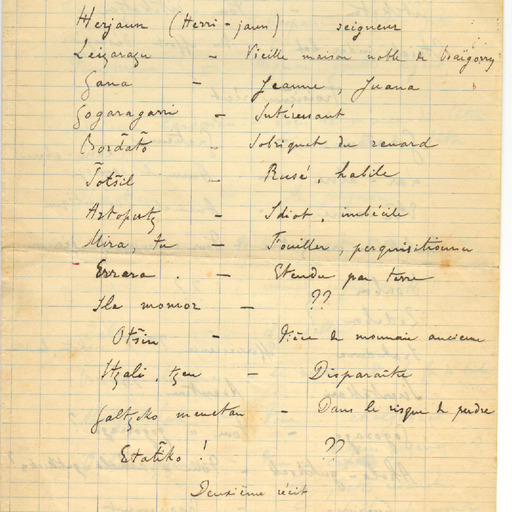 Herjaun (Herri-jaun) seigneur
Leizarazu - Vieille maison noble de Baïgorry
Gana - Jeanne, Juana
Gogaragarri - Intéressant
Bordãto - Sobriquet du renard
T̃ot̃sil - Rusé, habile
Astoputz - Idiot, imbécile
Mira, tu - Fouiller, perquisitionner
Errera. - Etendu par terre
Ile momor - ??
Ot̃sin - Pièce de monnaie ancienne
Itzali, tzen - Disparaître
Galtzeko menetan - Dans le risque de perdre
Etat̃iko! ??
Deuxième récit